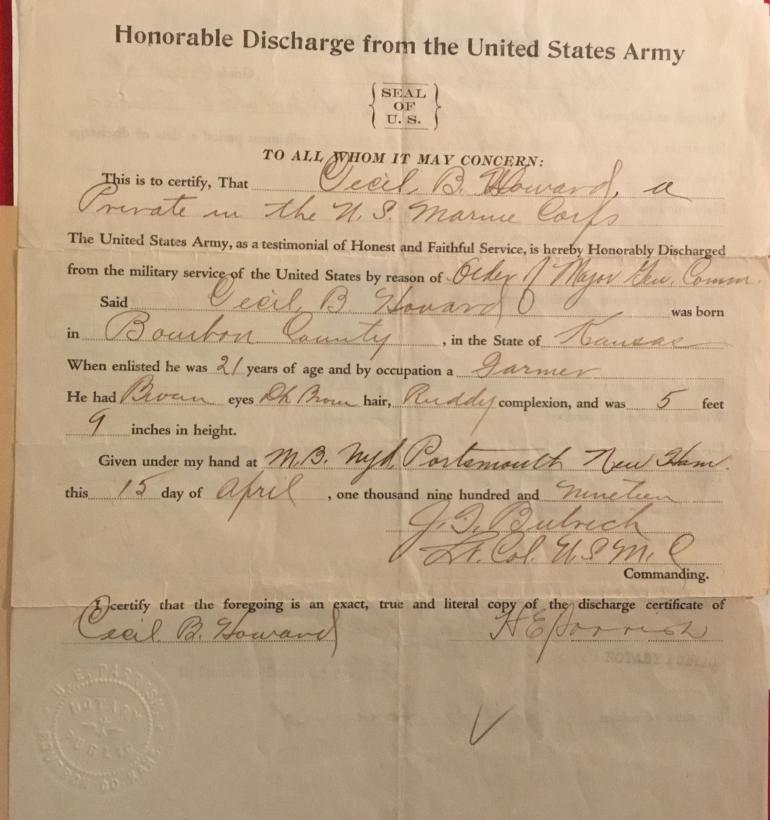 Honorable Discharge from the United States Army
SEAL
OF
U. S.
TO ALL WHOM IT MAY CONCERN:
This is to certify, That Cecil B. Howard, a
Private in the U. S. Marine Corps
The United States Army, as a testimonial of Honest and Faithful Service, is hereby Honorably Discharged
from the military service of the United States by reason of Order of Major Gen. Comm.
Said Cecil B Howard was born
in Bourbon County, in the State of Kansas
When enlisted he was 21 years of age and by occupation a Farmer
He had Brown eyes Dk Brown hair, Ruddy complexion, and was 5 feet
9 inches in height.
Given under my hand at M.B. Nyd, Portsmouth New Ham.
this 15 day of April, one thousand nine hundred and nineteen
J. G.
Lt. Col. U S M C
Commanding.
I certify that the foregoing is an exact, true and literal copy of the discharge certificate of
Cecil B. Howard H E Parrish
NOTARY PUBLIC
NOTARY
PUBLIC
BOURBON CO. KANS.